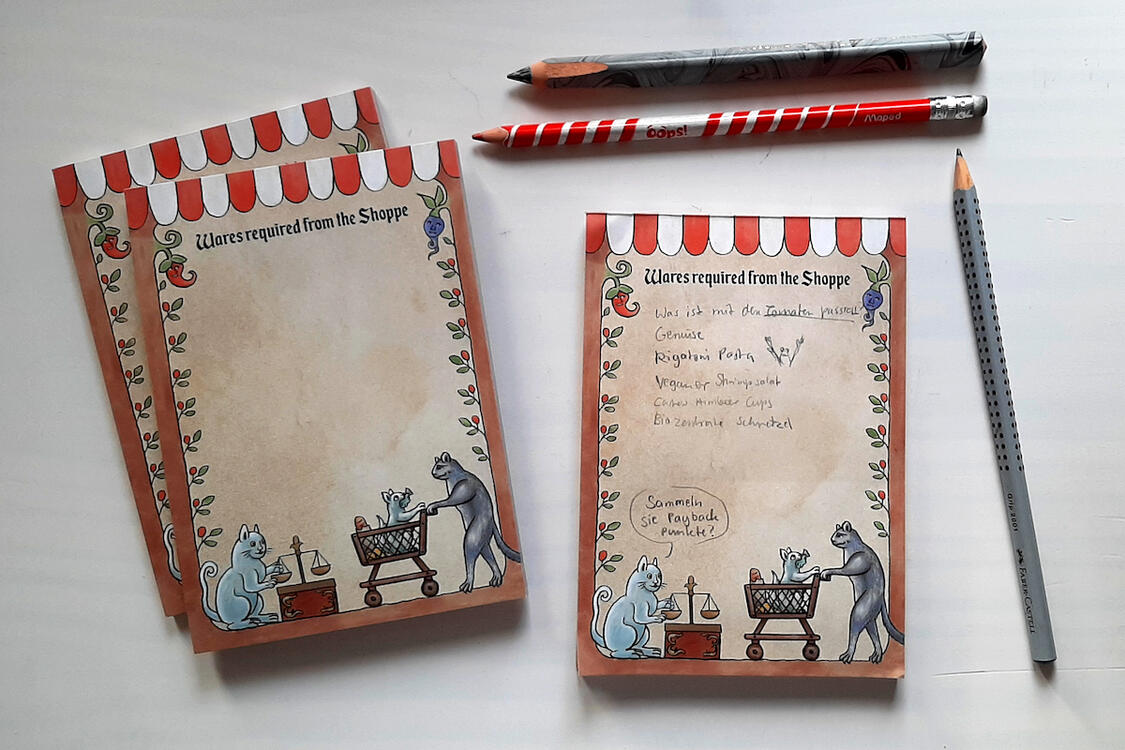 Oops!
Maped
Wares required from the Shoppe
Wares required from the Shoppe
Was ist mit den Tomaten passiert
Gemüse
Rigatoni Pasta
Veganer Shrimpssalat
Himbeer Cups
Bio Zentrale Schnetzel
Sammeln
sie Payback
Punkte?
Grip 2001
FABER-CASTELL